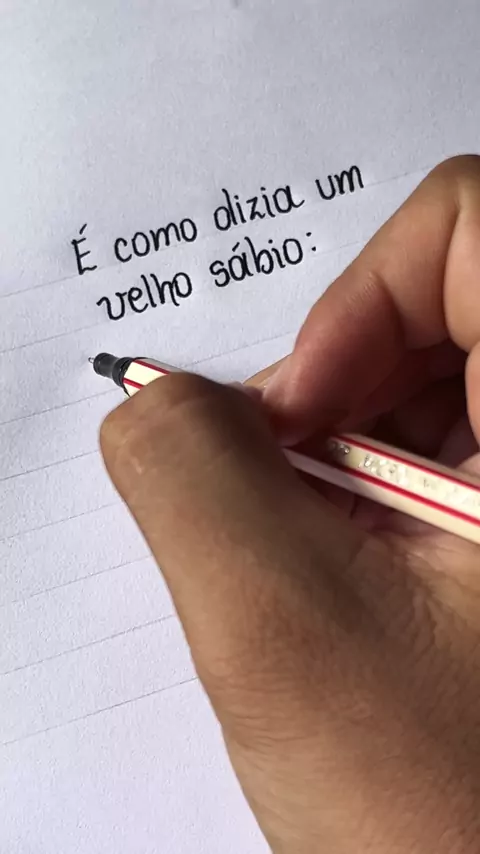 É como dizia um
velho sábio: